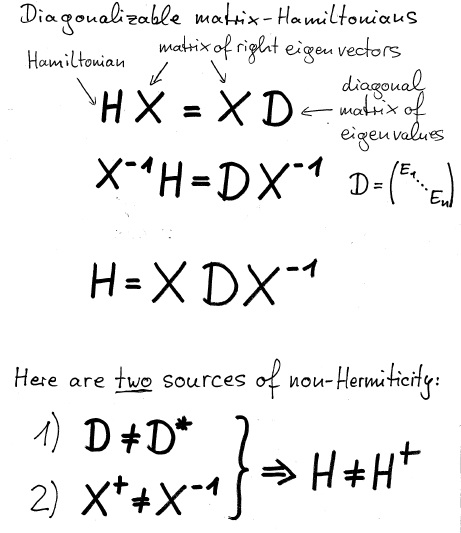 Diagonalizable matrix-Hamiltonians
matrix of right eigen vectors
Hamiltonian
diagonal
matrix of
eigenvalues
H X = X D
X⁻¹H = D X⁻¹
D = (E₁ ⋱ Eₙ)
H = X D X⁻¹
Here are two sources of non-Hermiticity:
1) D ≠ D*
2) X⁺ ≠ X⁻¹
} ⇒ H ≠ H⁺